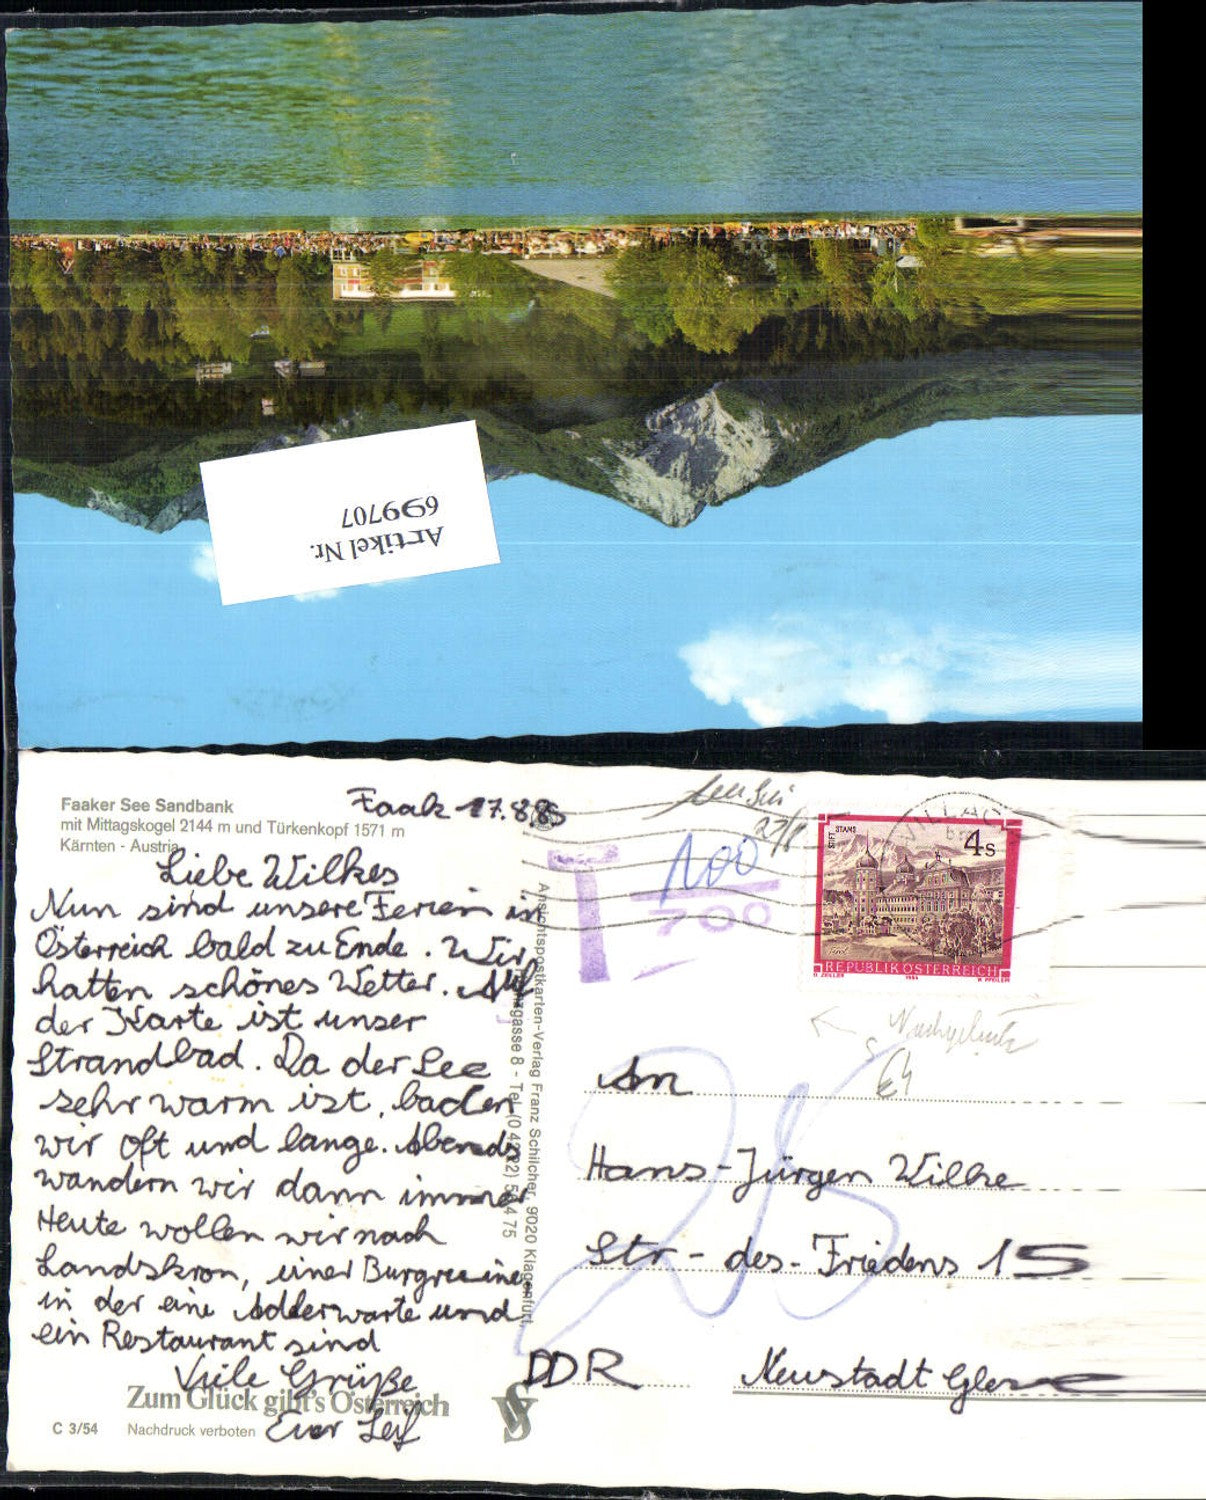 Artikel Nr.
699707
Faaker See Sandbank
mit Mittagskogel 2144 m und Türkenkopf 1571 m
Kärnten - Austria
Faak 17.8.85
Liebe Wilkes
Nun sind unsere Ferien in
Österreich bald zu Ende. Wir
hatten schönes Wetter. Auf
der Karte ist unser
Strandbad. Da der See
sehr warm ist, baden
wir oft und lange. Abends
wandern wir dann immer
Heute wollen wir nach
Landskron, einer Burgruine
in der eine Adlerwarte und
ein Restaurant sind
Viele Grüße
Euer Leif
Zum Glück gibt's Österreich
C 3/54 Nachdruck verboten
Ansichtspostkarten-Verlag Franz Schilcher, 9020 Klagenfurt,
27/8
T 100
700
VILLACH
STIFT STAMS
4 S
REPUBLIK ÖSTERREICH
An
Hans-Jürgen Wilke
Str-des-Friedens 15
DDR Neustadt Glewe